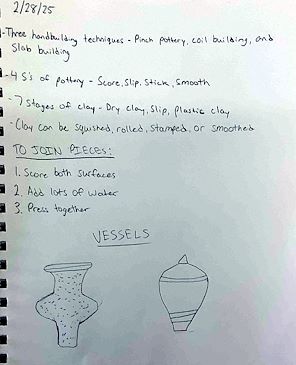 2/28/25
-Three handbuilding techniques - Pinch pottery, coil building, and
Slab building
-4 S's of pottery - Score, Slip, Stick, Smooth
-7 Stages of clay - Dry clay, Slip, plastic clay
-Clay can be squished, rolled, stamped, or smoothed
TO JOIN PIECES:
1. Score both surfaces
2. Add lots of water
3. Press together
VESSELS